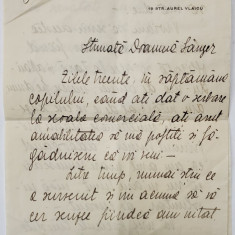 19 STR. AUREL VLAICU
Stimată Doamnă Sânger
Zilele trecute, în săptămâna
copilului, când ați dat o serbare
la școala comercială, ați avut
amabilitatea să mă poftiți și fă-
găduisem că voi veni –
Între timp, numai știu ce
a survenit și vin acuma să vă
cer scuze fiindcă am uitat